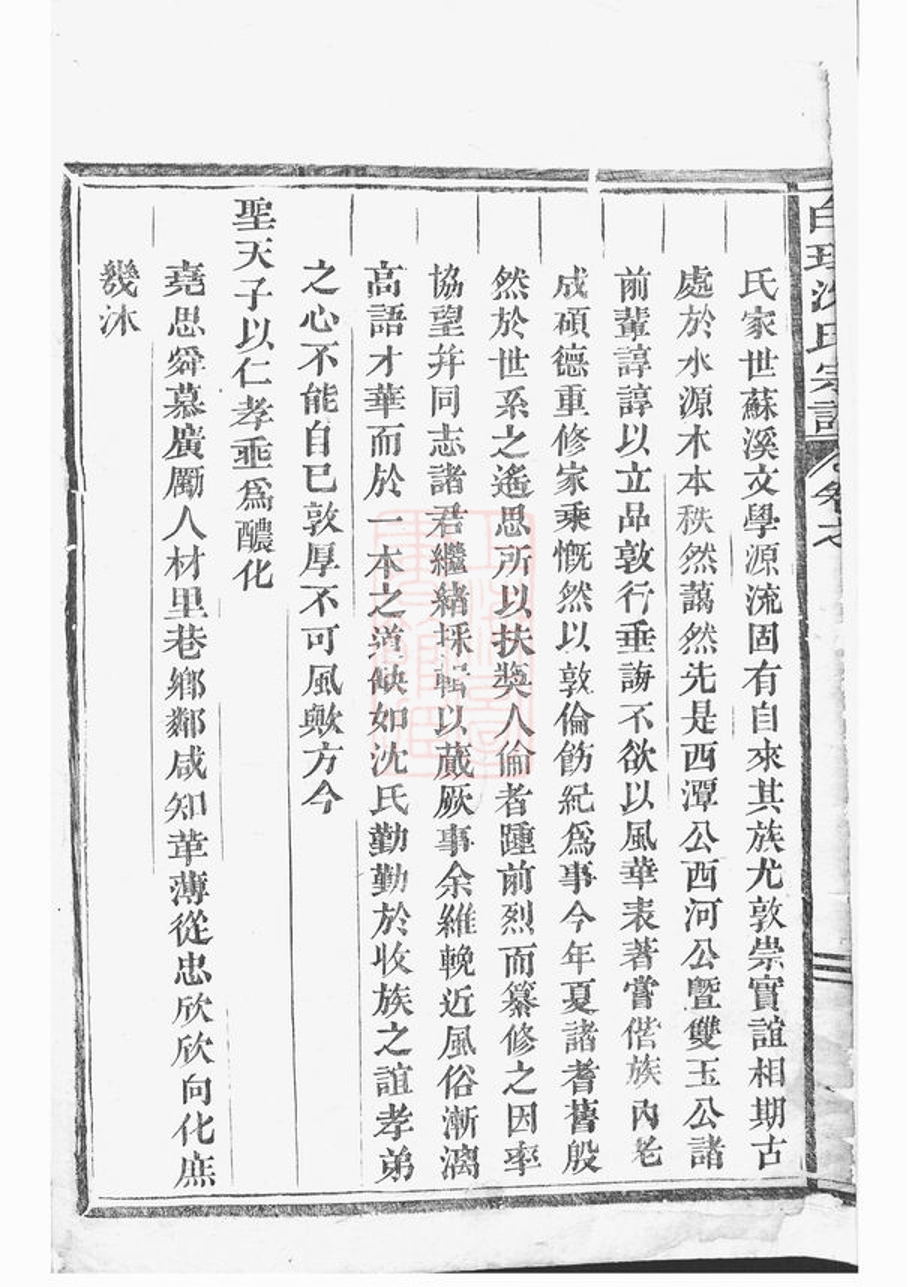 氏家世蘇溪文學源流固有自來其族尤敦崇實誼相期古
處於水源木本秩然藹然先是西潭公西河公暨雙玉公諸
前輩諄諄以立品敦行垂誨不欲以風華表著嘗偕族內老
成碩德重修家乘慨然以敦倫飭紀爲事今年夏諸耆舊殷
然於世系之遙思所以扶奬人倫者踵前烈而纂修之因率
協望并同志諸君繼緒採輯以蕆厥事余維輓近風俗漸漓
高語才華而於一本之道缺如沈氏勤勤於收族之誼孝弟
之心不能自已敦厚不可風歟方今
聖天子以仁孝垂爲醲化
堯思舜慕廣厲人材里巷鄉鄰咸知革薄從忠欣欣向化庶
幾沐